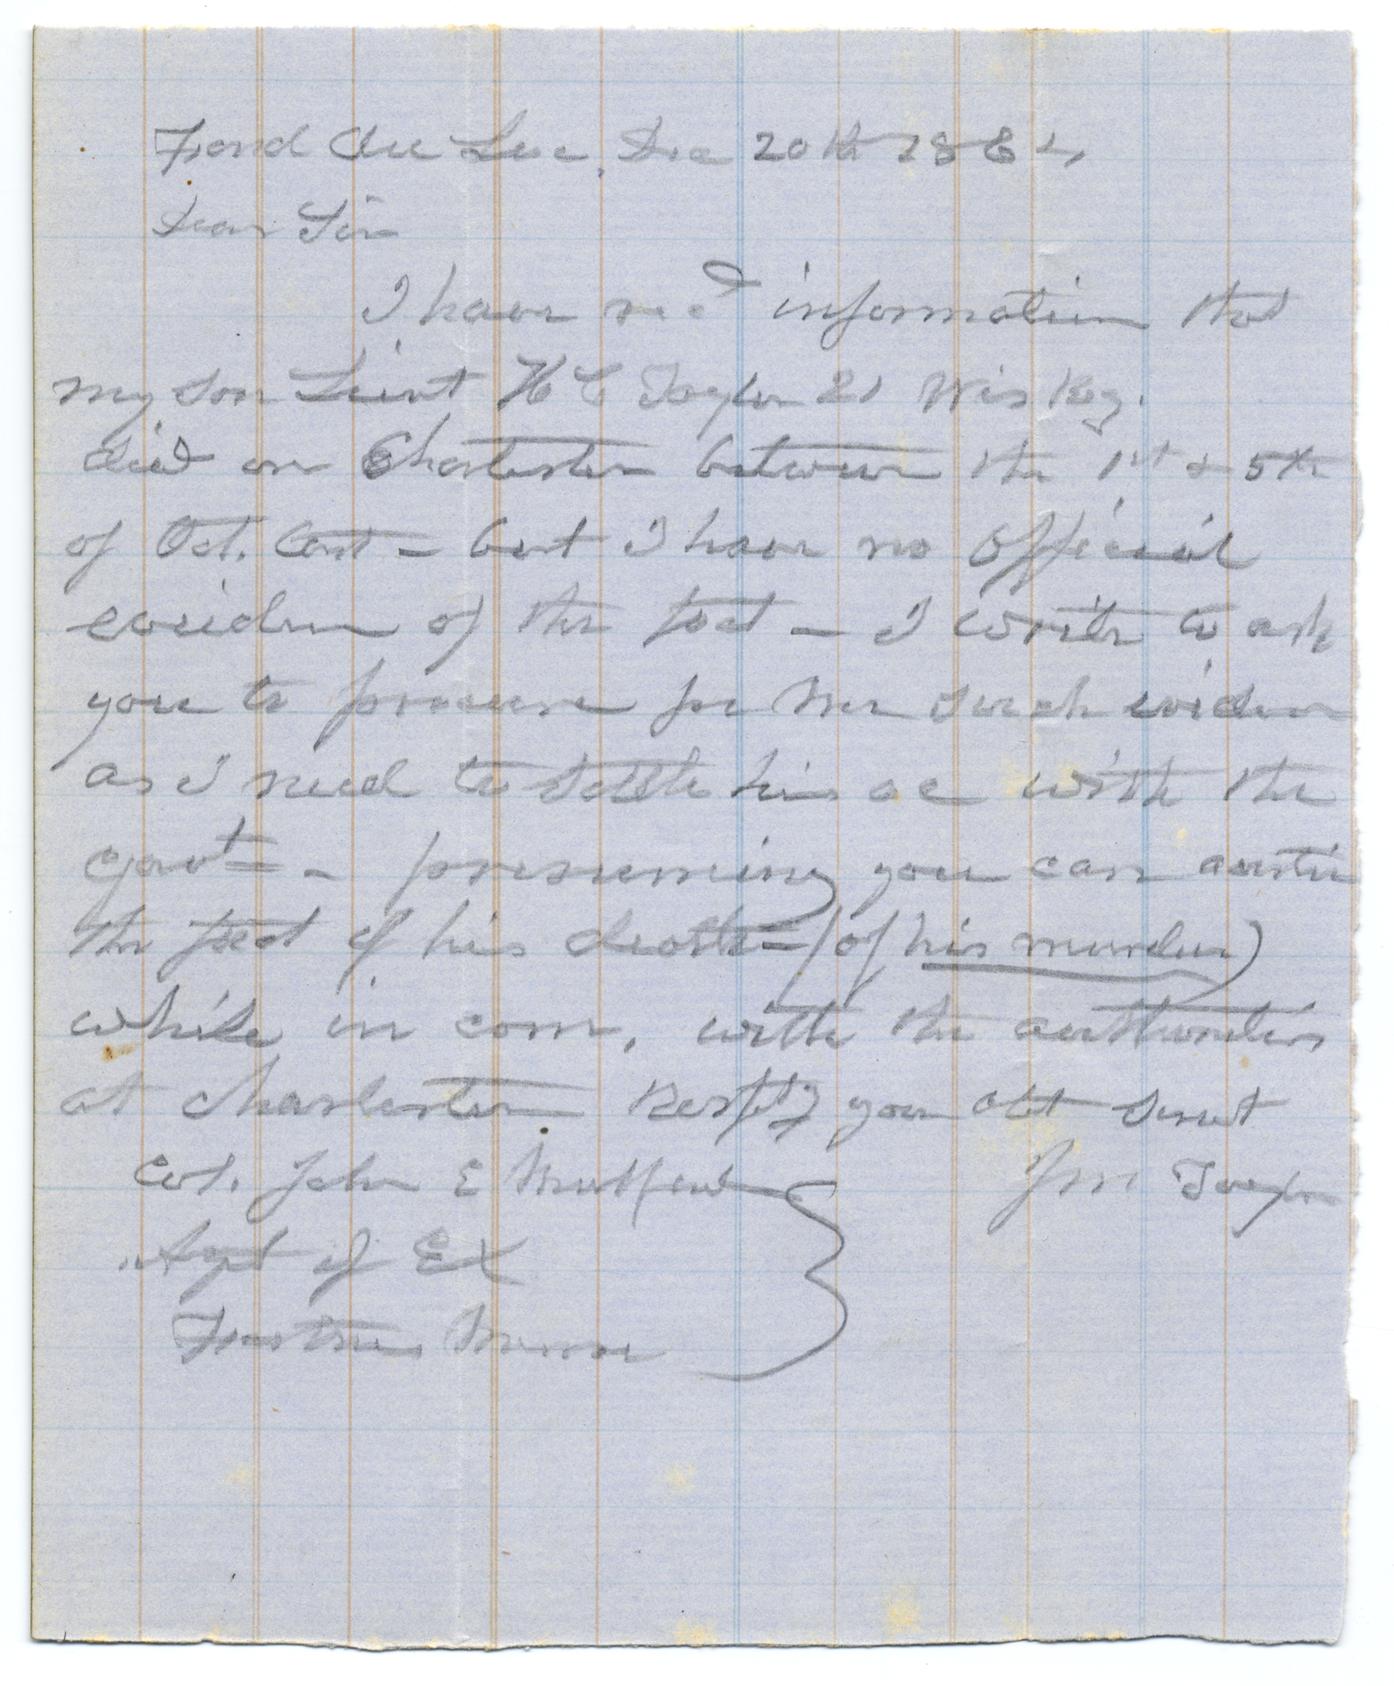 Fond du Lac, Dec 20th 1864
Dear Sir
I have recd information that
my son Lieut H C Taylor 21 Wis Reg.
died on Charleston between the 1st & 5th
of Oct. - but I have no official
evidence of the fact - I write to ask
you to procure for me such evidence
as I need to settle his ac with the
govt - presuming you can
the fact of his death - (of his murder)
while in com, with the authorities
at Charleston Respfy your obt servt
Col. John E Mulford J M Taylor
Agt of Ex
Fortress Monroe